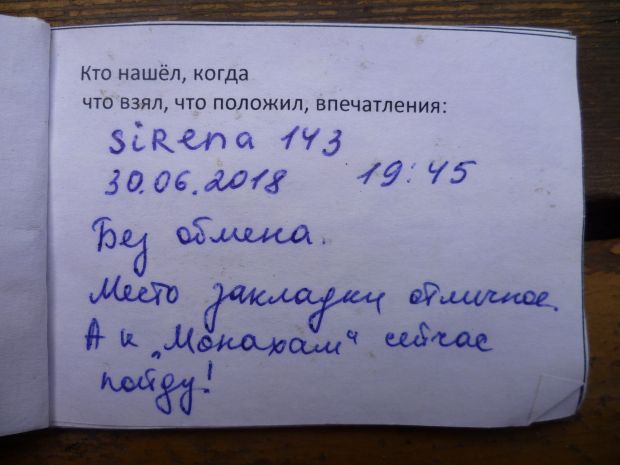 Кто нашёл, когда
что взял, что положил, впечатления:
siRena 143
30.06.2018 19:45
Без обмена.
Место закладки отличное.
А к „Монахам“ сейчас
пойду!